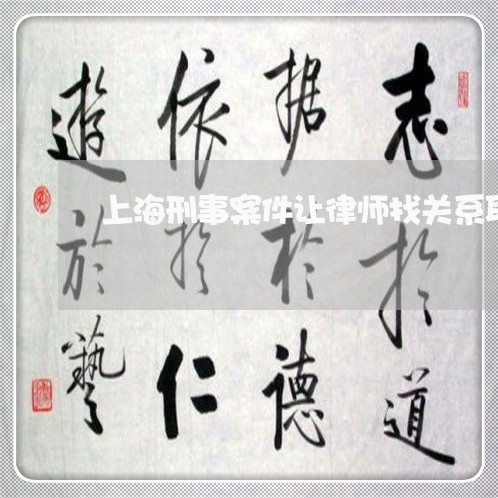 志於道
据於德
依於仁
遊於藝
上海刑事案件让律师找关系